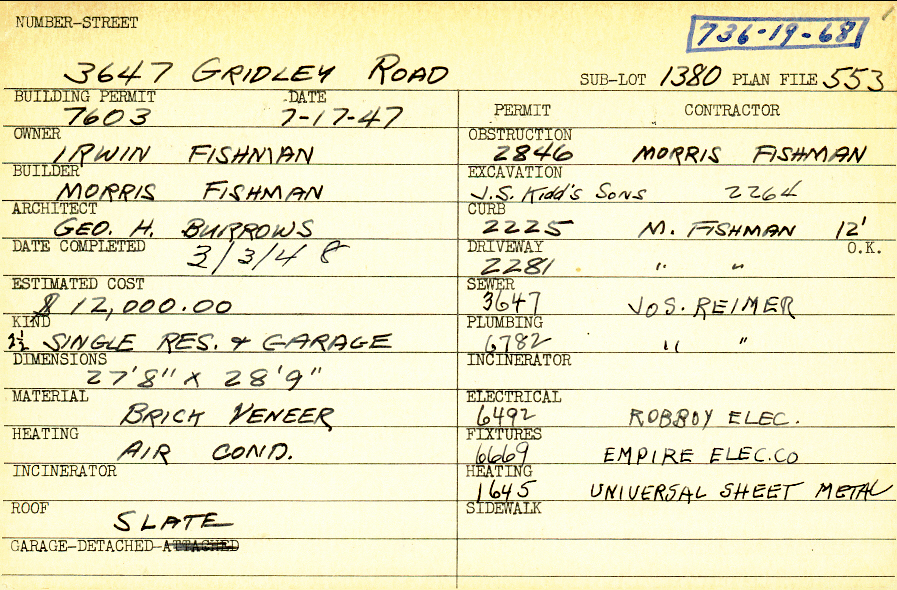 NUMBER-STREET
736-19-68
3647 GRIDLEY ROAD
SUB-LOT 1380 PLAN FILE 553
BUILDING PERMIT DATE
7603 7-17-47
OWNER
IRWIN FISHMAN
BUILDER
MORRIS FISHMAN
ARCHITECT
GEO. H. BURROWS
DATE COMPLETED
3/3/48
ESTIMATED COST
$12,000.00
KIND
2½ SINGLE RES. & GARAGE
DIMENSIONS
27'8" X 28'9"
MATERIAL
BRICK VENEER
HEATING
AIR COND.
INCINERATOR
ROOF
SLATE
GARAGE-DETACHED-ATTACHED
PERMIT CONTRACTOR
OBSTRUCTION
2846 MORRIS FISHMAN
EXCAVATION
J.S. Kidd's Sons 2264
CURB
2225 M. FISHMAN 12'
DRIVEWAY O.K.
2281 " "
SEWER
3647 JOS. REIMER
PLUMBING
6782 " "
INCINERATOR
ELECTRICAL
6492 ROBROY ELEC.
FIXTURES
6669 EMPIRE ELEC.CO
HEATING
1645 UNIVERSAL SHEET METAL
SIDEWALK